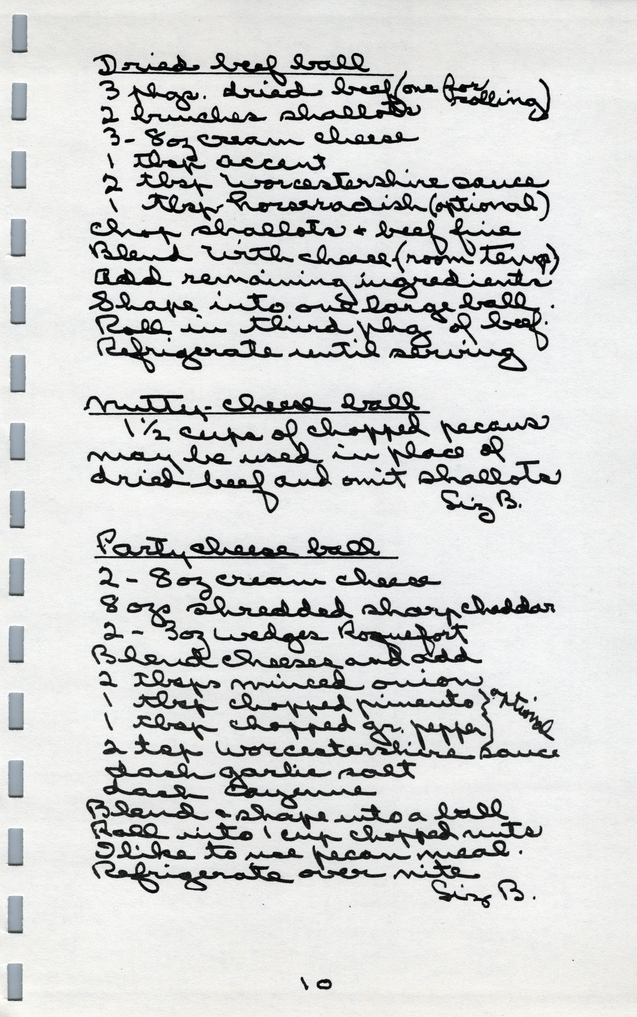 Dried beef ball
3 pkgs. dried beef (one for rolling)
2 bunches shallots
3 - 8oz cream cheese
1 tbsp accent
2 tbsp Worcestershire sauce
1 tbsp horseradish (optional)
Chop shallots + beef fine
Blend with cheese (room temp)
Add remaining ingredients
Shape into one large ball.
Roll in third pkg of beef.
Refrigerate until serving
Nutty-cheese ball
1 1/2 cups of chopped pecans
may be used in place of
dried beef and omit shallots
Liz B.
Party cheese ball
2 - 8oz cream cheese
8 ozs shredded sharp cheddar
2 - 3oz wedges Roquefort
Blend cheeses and add
2 tbsps minced onion
1 tbsp chopped pimento } optional
1 tbsp chopped gr. pepper
2 tsp Worcestershire sauce
dash garlic salt
dash Cayenne
Blend + shape into a ball
Roll into 1 cup chopped nuts
I like to use pecan meal.
Refrigerate over nite
Liz B.
10